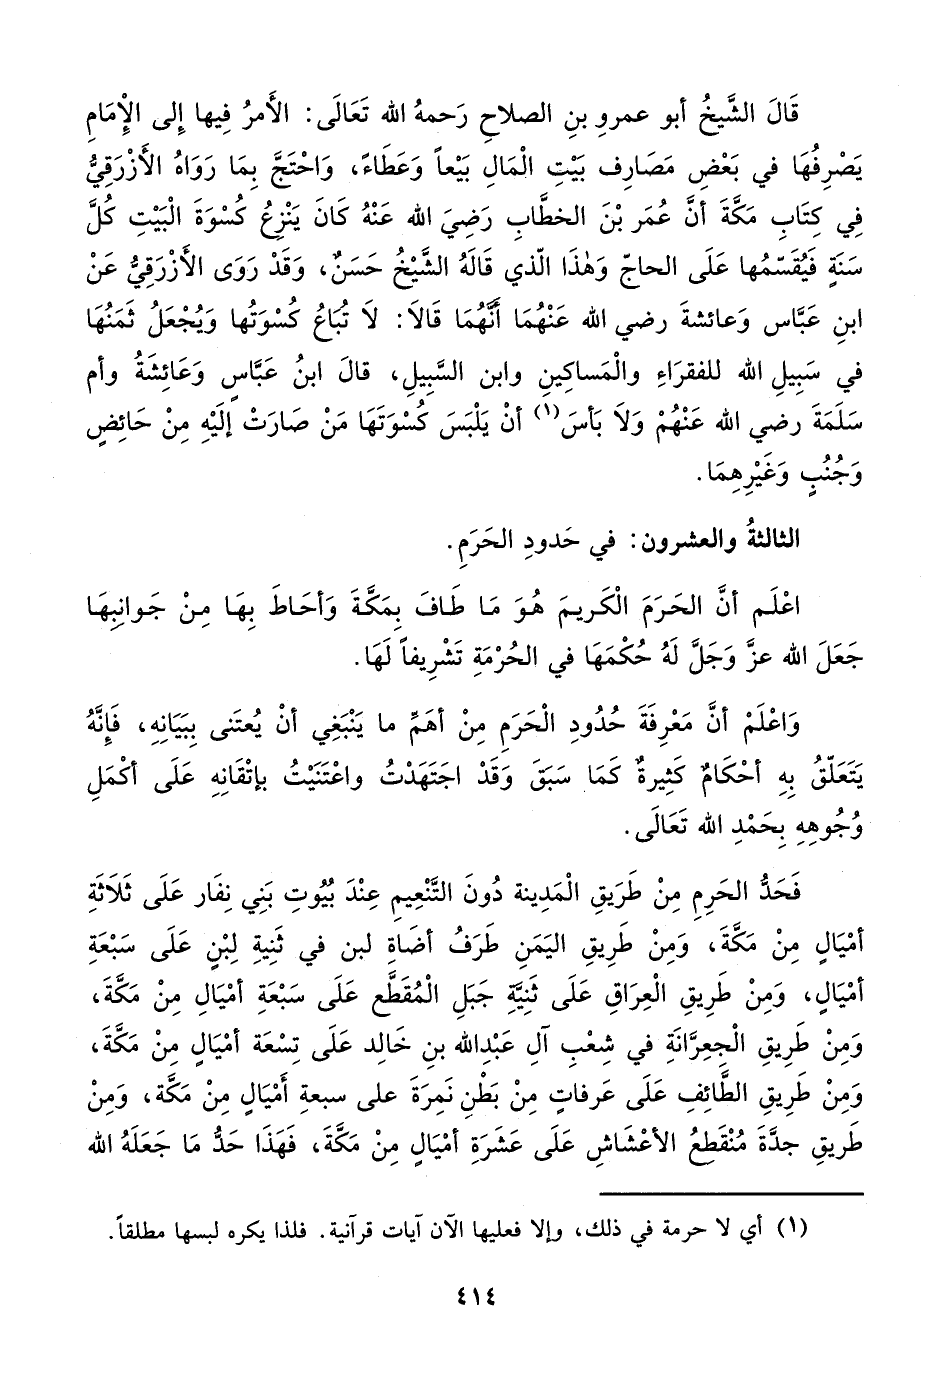 قَالَ الشَّيخُ أبو عمروِ بنِ الصلاحِ رَحمهُ الله تَعَالَى: الأَمرُ فِيها إِلى الْإِمَامِ
يَصْرِفُهَا في بَعْضِ مَصَارِف بَيْتِ الْمَالِ بَيْعاً وَعَطَاءً، وَاحْتَجَّ بِمَا رَوَاهُ الأَزْرَقِيُّ
فِي كِتَابِ مَكَّةَ أنَّ عُمَر بْنَ الخطَّاب رَضِيَ الله عَنْهُ كَانَ يَنْزِعُ كُسْوَةَ الْبَيْتِ كُلَّ
سَنَةٍ فَيُقَسّمُها عَلَى الحاجّ وَهٰذا الّذي قالَهُ الشَّيْخُ حَسَنٌ، وَقَدْ رَوَى الأَزْرَقِيُّ عَنْ
ابنِ عَبَّاس وَعائشةَ رضي الله عَنْهُمَا أَنَّهُمَا قَالَا: لَا تُبَاعُ كُسْوَتُها وَيُجْعَلُ ثَمَنُهَا
في سَبِيلِ الله للفقرَاءِ والْمَساكِينِ وابن السَّبِيلِ، قالَ ابنُ عَبَّاسٍ وَعَائِشَةُ وأم
سَلَمَةَ رضي الله عَنْهُمْ وَلَا بَأسَ(١) أنْ يَلْبَسَ كُسْوَتَهَا مَنْ صَارَتْ إلَيْهِ مِنْ حَائِضٍ
وَجُنُبٍ وَغَيْرِهِمَا.
الثالثةُ والعشرون: في حَدودِ الحَرَمِ.
اعْلَم أنَّ الحَرَمَ الْكَرِيمَ هُوَ مَا طَافَ بِمَكَّةَ وَأحَاطَ بِهَا مِنْ جَوانِبِهَا
جَعَلَ الله عزَّ وَجَلَّ لَهُ حُكْمَهَا في الحُرْمَةِ تَشْرِيفاً لَهَا.
وَاعْلَمْ أنَّ مَعْرِفَةَ حُدُودِ الْحَرَمِ مِنْ أهَمِّ ما يَنْبَغِي أنْ يُعتَنى بِبَيَانِهِ، فَإِنَّهُ
يَتَعَلّقُ بِهِ أحْكَامٌ كَثِيرةٌ كَمَا سَبَقَ وَقَدْ اجتَهَدْتُ واعْتَنَيْتُ بإتْقَانِهِ عَلَى أكْمَلِ
وُجُوهِهِ بِحَمْدِ الله تَعَالَى.
فَحَدُّ الحَرِمِ مِنْ طَرَيقِ الْمَدِينة دُونَ التَّنْعِيمِ عِنْدَ بُيُوتِ بَنِي نِفَار عَلَى ثَلَاثَةِ
أمْيَالٍ مِنْ مَكَّةَ، وَمِنْ طَرِيقِ اليَمَنِ طَرَفُ أضَاةِ لبن في ثَنِيةِ لِبْنٍ عَلَى سَبْعَةِ
أمْيَالٍ، وَمِنْ طَرِيقِ الْعِرَاقِ عَلَى ثَنِيَّةِ جَبَلِ الْمُقَطَّع عَلَى سَبْعَةِ أمْيَالٍ مِنْ مَكَّةَ،
وَمِنْ طَرِيقِ الْجِعِرَّانَةِ في شِعْبِ آلِ عَبْدالله بنِ خَالِد عَلَى تِسْعَة أمْيَالٍ مِنْ مَكَّةَ،
وَمِنْ طَرِيقِ الطَّائِفِ عَلَى عَرفاتٍ مِنْ بَطْنِ نَمِرَةَ على سبعةِ أَمْيَالٍ مِنْ مَكَّة، وَمِنْ
طَريقِ جدَّةَ مُنْقَطِعُ الأعْشَاشِ عَلَى عَشَرَةِ أمْيَالٍ مِنْ مَكَّةَ، فَهَذَا حَدُّ مَا جَعَلَهُ الله
(١) أي لا حرمة في ذلك، وإلا فعليها الآن آيات قرآنية. فلذا يكره لبسها مطلقاً.
٤١٤